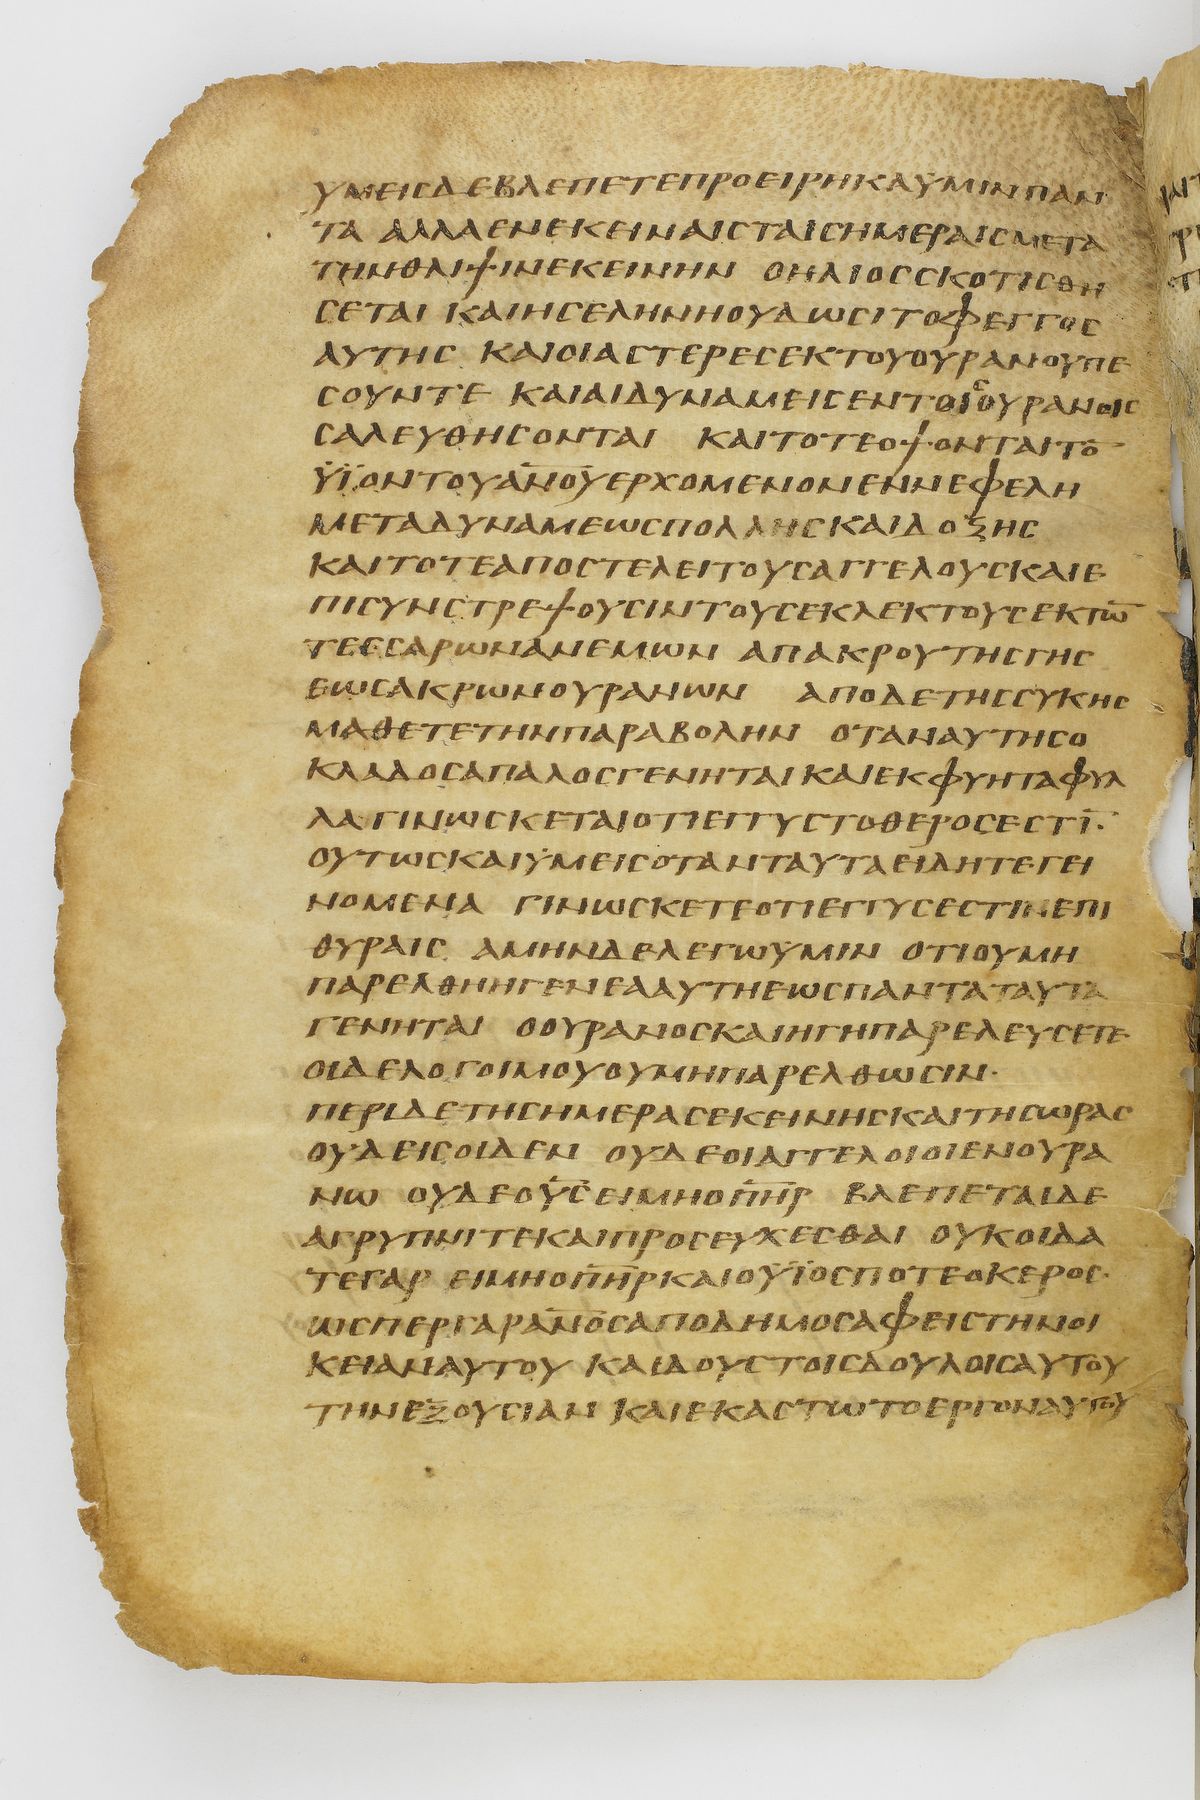 ΥΜΕΙСΔΕΒΛΕΠΕΤΕΠΡΟΕΙΡΗΚΑΫΜΙΝΠΑΝ
ΤΑ ΑΛΛΑΕΝΕΚΕΙΝΑΙСΤΑΙСΗΜΕΡΑΙСΜΕΤΑ
ΤΗΝΘΛΙΨΙΝΕΚΕΙΝΗΝ ΟΗΛΙΟССΚΟΤΙСΘΗ
СΕΤΑΙ ΚΑΙΗСΕΛΗΝΗΟΥΔΩСΙΤΟΦΕΓΓΟС
ΑΥΤΗС ΚΑΙΟΙΑСΤΕΡΕСΕΚΤΟΥΟΥΡΑΝΟΥΠΕ
СΟΥΝΤΕ ΚΑΙΑΙΔΥΝΑΜΕΙСΕΝΤΟΙСΟΥΡΑΝΟΙС
СΑΛΕΥΘΗСΟΝΤΑΙ ΚΑΙΤΟΤΕΟΨΟΝΤΑΙΤΟ̄
Ϋ̅Ϊ̅ΟΝΤΟΥΑ̅Ν̅Ο̅Υ̅ΕΡΧΟΜΕΝΟΝΕΝΝΕΦΕΛΗ
ΜΕΤΑΔΥΝΑΜΕΩСΠΟΛΛΗСΚΑΙΔΟΞΗС
ΚΑΙΤΟΤΕΑΠΟСΤΕΛΕΙΤΟΥСΑΓΓΕΛΟΥСΚΑΙΕ
ΠΙСΥΝСΤΡΕΨΟΥСΙΝΤΟΥСΕΚΛΕΚΤΟΥСΕΚΤΩ̄
ΤΕССΑΡΩΝΑΝΕΜΩΝ ΑΠΑΚΡΟΥΤΗСΓΗС
ΕΩСΑΚΡΩΝΟΥΡΑΝΩΝ ΑΠΟΔΕΤΗССΥΚΗС
ΜΑΘΕΤΕΤΗΝΠΑΡΑΒΟΛΗΝ ΟΤΑΝΑΥΤΗСΟ
ΚΛΑΔΟСΑΠΑΛΟСΓΕΝΗΤΑΙΚΑΙΕΚΦΥΗΤΑΦΥΛ
ΛΑΓΙΝΩСΚΕΤΑΙΟΤΙΕΓΓΥСΤΟΘΕΡΟСΕСΤῙ·
ΟΥΤΩСΚΑΙΫΜΕΙСΟΤΑΝΤΑΥΤΑΕΙΔΗΤΕΓΕΙ
ΝΟΜΕΝΑ ΓΙΝΩСΚΕΤΕΟΤΙΕΓΓΥСΕСΤΙΝΕΠΙ
ΘΥΡΑΙС ΑΜΗΝΔΕΛΕΓΩΫΜΙΝ ΟΤΙΟΥΜΗ
ΠΑΡΕΛΘΗΗΓΕΝΕΑΑΥΤΗΕΩСΠΑΝΤΑΤΑΥΤΑ
ΓΕΝΗΤΑΙ ΟΟΥΡΑΝΟСΚΑΙΗΓΗΠΑΡΕΛΕΥСΕΤΕ·
ΟΙΔΕΛΟΓΟΙΜΟΥΟΥΜΗΠΑΡΕΛΘΩСΙΝ·
ΠΕΡΙΔΕΤΗСΗΜΕΡΑСΕΚΕΙΝΗСΚΑΙΤΗСΩΡΑС
ΟΥΔΕΙСΟΙΔΕΝ ΟΥΔΕΟΙΑΓΓΕΛΟΙΟΙΕΝΟΥΡΑ
ΝΩ ΟΥΔΕΟΫ̅С̅ΕΙΜΗΟΠ̅Η̅Ρ̅ ΒΛΕΠΕΤΑΙΔΕ
ΑΓΡΥΠΝΙΤΕΚΑΙΠΡΟСΕΥΧΕСΘΑΙ ΟΥΚΟΙΔΑ
ΤΕΓΑΡ ΕΙΜΗΟΠ̅Η̅Ρ̅ΚΑΙΟΫ̅Ϊ̅ΟСΠΟΤΕΟΚΕΡΟС·
ΩСΠΕΡΓΑΡΑ̅Ν̅Ο̅СΑΠΟΔΗΜΟСΑΦΕΙСΤΗΝΟΙ
ΚΕΙΑΝΑΥΤΟΥ ΚΑΙΔΟΥСΤΟΙСΔΟΥΛΟΙСΑΥΤΟΥ
ΤΗΝΕΞΟΥСΙΑΝ ΚΑΙΕΚΑСΤΩΤΟΕΡΓΟΝΑΥΤΟΥ